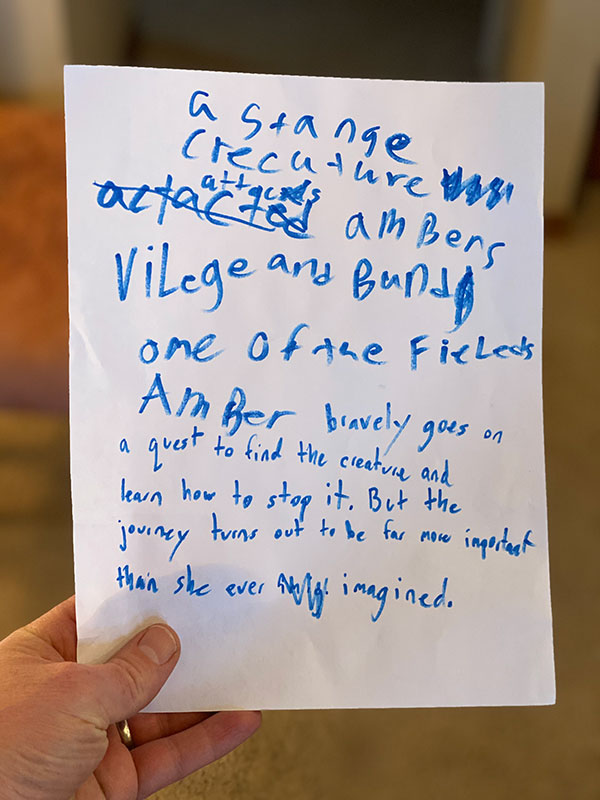 a stange
crecature
attacks
actacted ambers
Vilege and Bund
one of the fieleds
Amber bravely goes on
a quest to find the creature and
learn how to stop it. But the
journey turns out to be far more important
than she ever imagined.